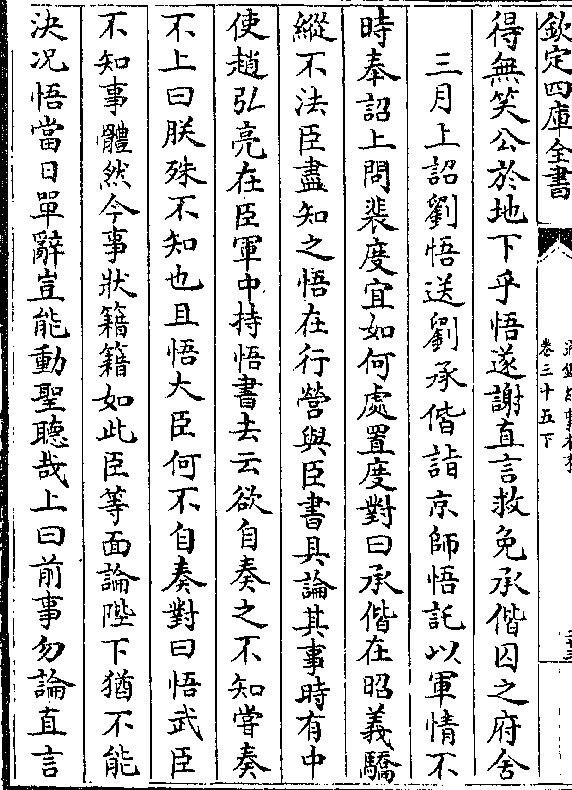 欽定四庫全書
卷三十五下
得無笑公於地下乎悟遂謝直言救免承偕囚之府舍
三月上詔劉悟送劉承偕詣京師悟託以軍情不
時奉詔上問裴度宜如何處置度對曰承偕在昭義驕
縱不法臣盡知之悟在行營與臣書具論其事時有中
使趙弘亮在臣軍中持悟書去云欲自奏之不知嘗奏
不上曰朕殊不知也且悟大臣何不自奏對曰悟武臣
不知事體然今事狀籍籍如此臣等面論陛下猶不能
決况悟當日單辭豈能動聖聽哉上曰前事勿論直言